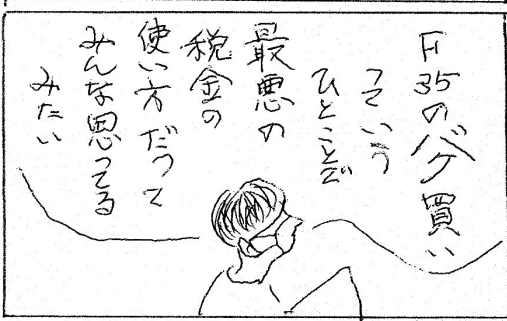 F35のバク買い
っていう
ひとことで
最悪の
税金の
使い方だって
みんな思ってる
みたい